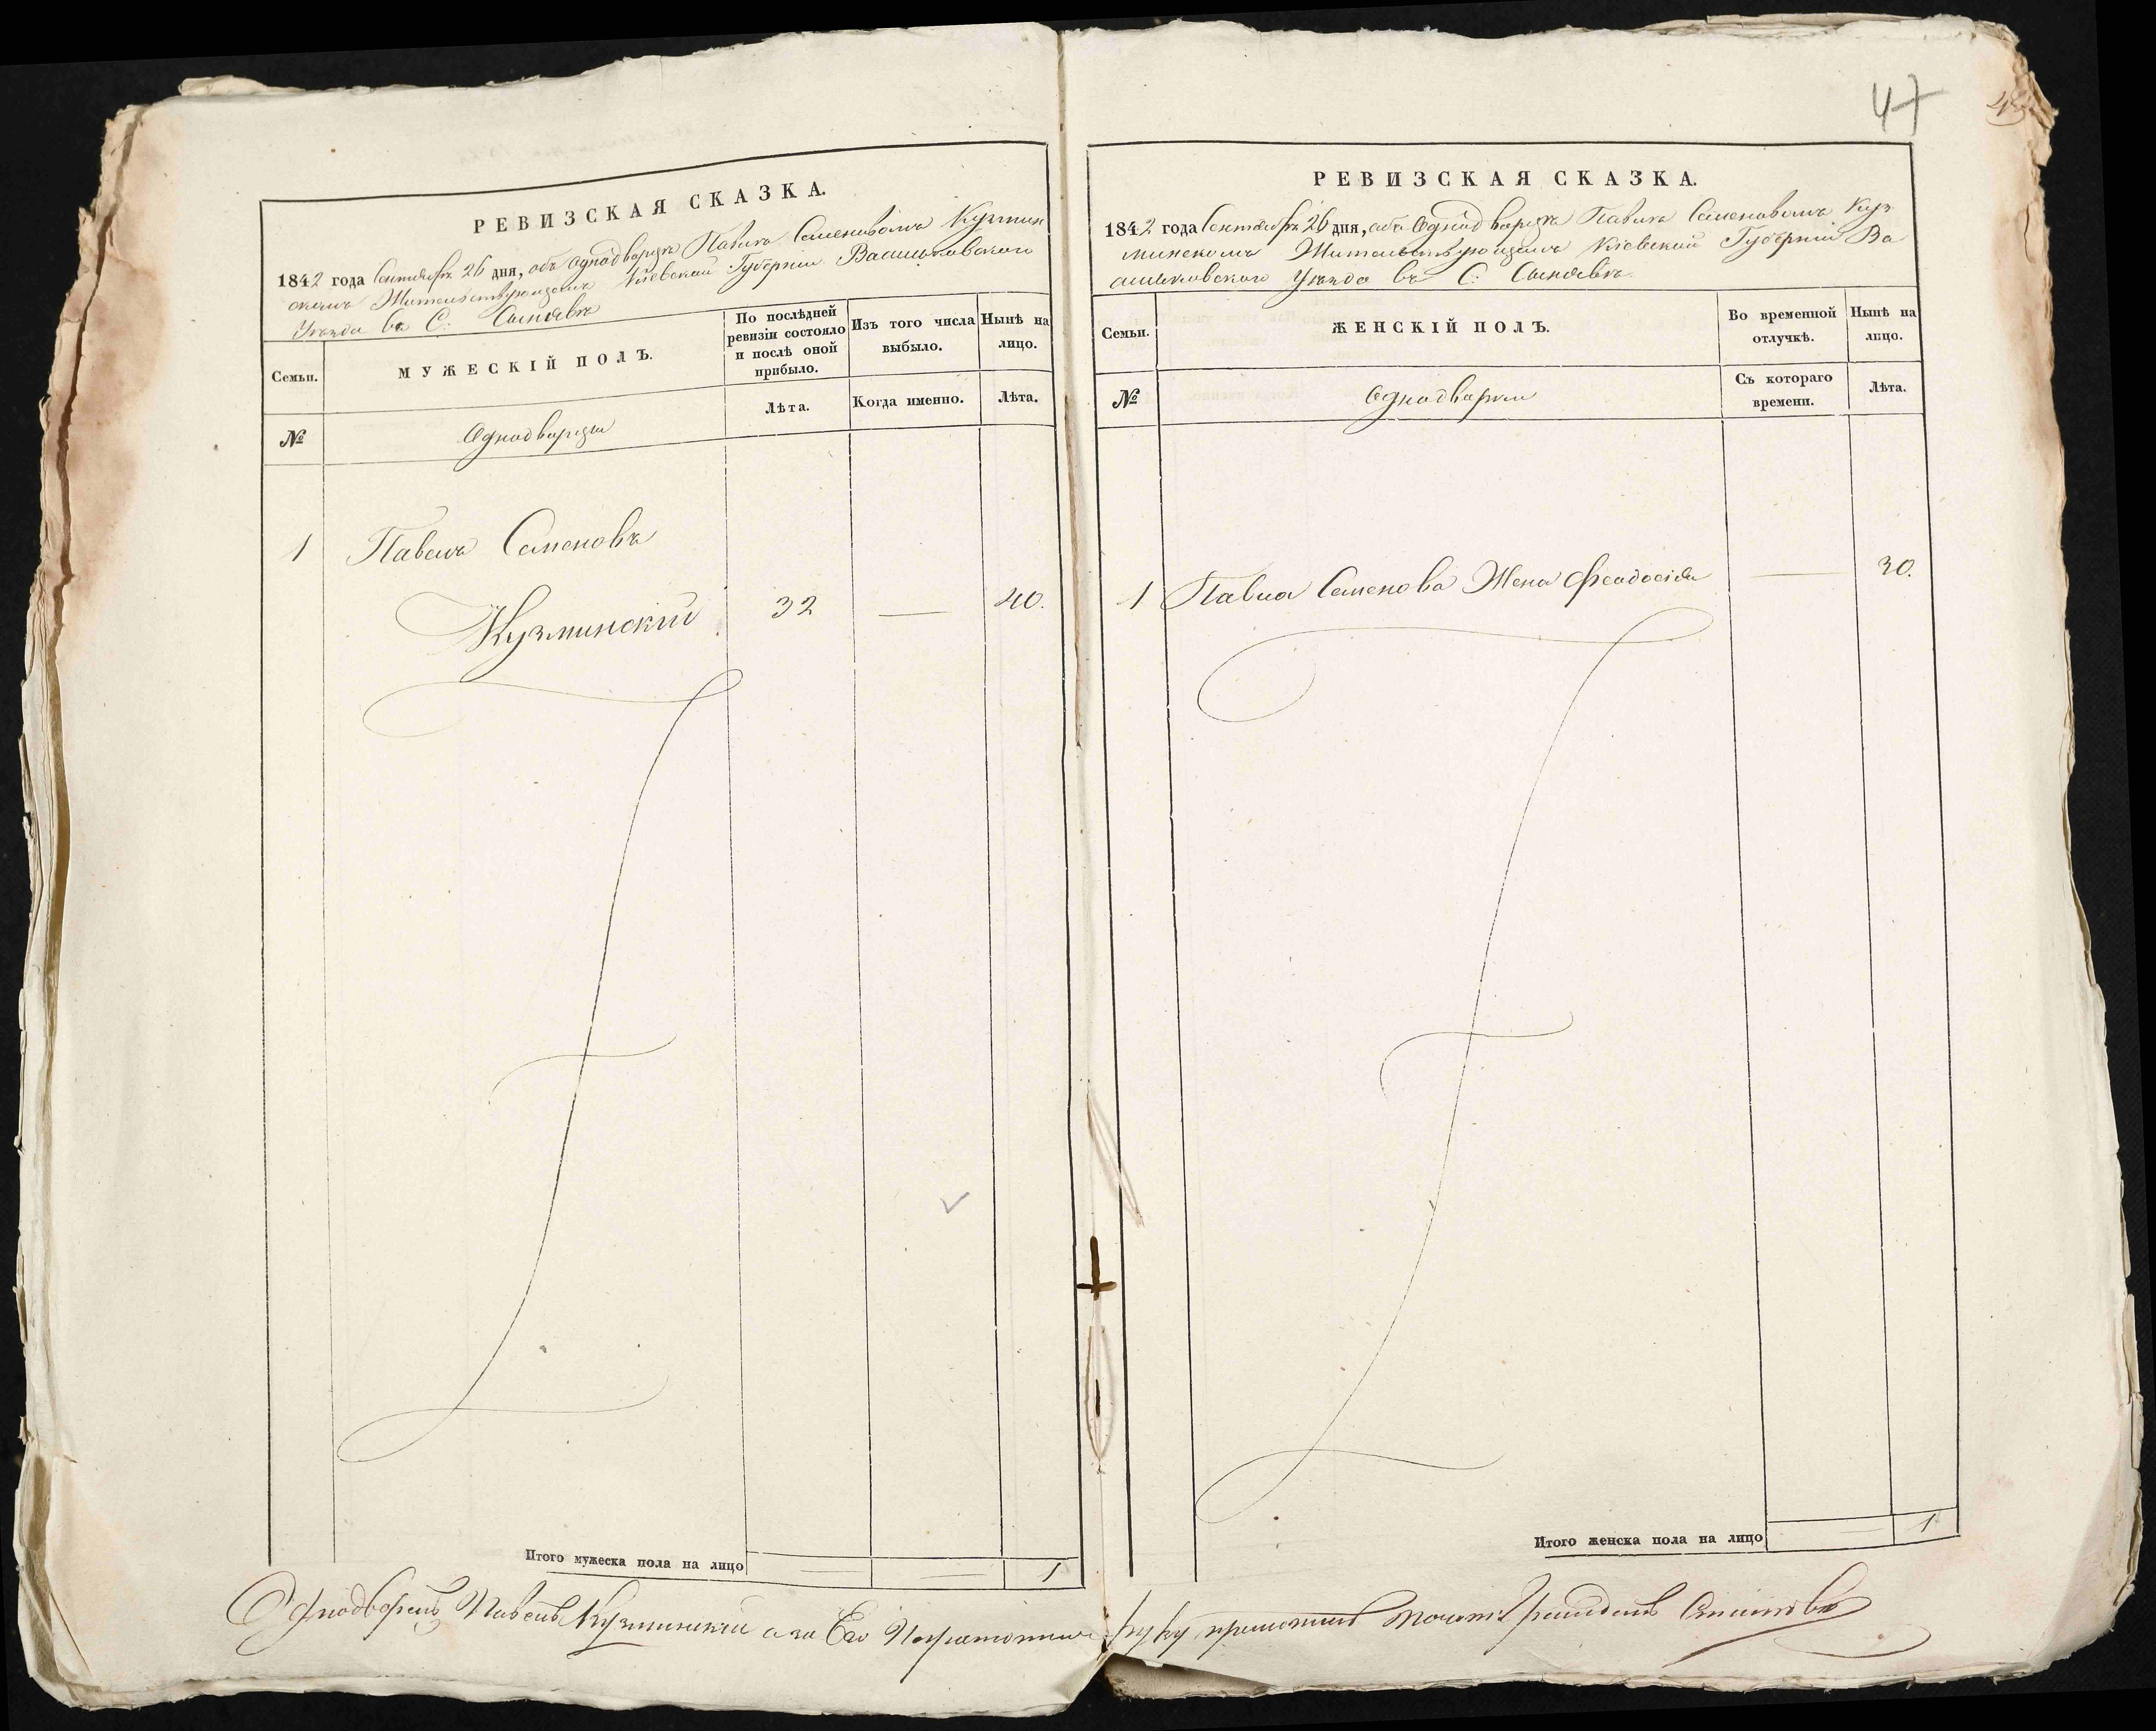 47
РЕВИЗСКАЯ СКАЗКА.
1842 года Сентября 26 дня, объ Однодворцѣ Павлѣ Семеновомъ Кузмин
скомъ Жительствующемъ Кіевской Губерніи Васильковскаго
Уѣзда въ С:
Семьи.
МУЖЕСКІЙ ПОЛЪ.
По послѣдней
ревизіи состояло
и послѣ оной
прибыло.
Изъ того числа
выбыло.
Нынѣ на
лицо.
№
Однодворцы
Лѣта.
Когда именно.
Лѣта.
1 Павелъ Семеновъ
Кузминскій 32 — 40.
Итого мужеска пола на лицо 1
РЕВИЗСКАЯ СКАЗКА.
1842 года Сентября 26 дня, объ Однодворцѣ Павлѣ Семеновомъ Куз
минскомъ Жительствующемъ Кіевской Губерніи Ва
сильковскаго Уѣзда въ С:
Семьи.
ЖЕНСКІЙ ПОЛЪ.
Во временной
отлучкѣ.
Нынѣ на
лицо.
№
Однодворки
Съ котораго
времени.
Лѣта.
1 Павла Семенова Жена Феодосія — 30.
Итого женска пола на лицо — 1
Однодворецъ Павелъ Кузминскій а за Его руку приложилъ